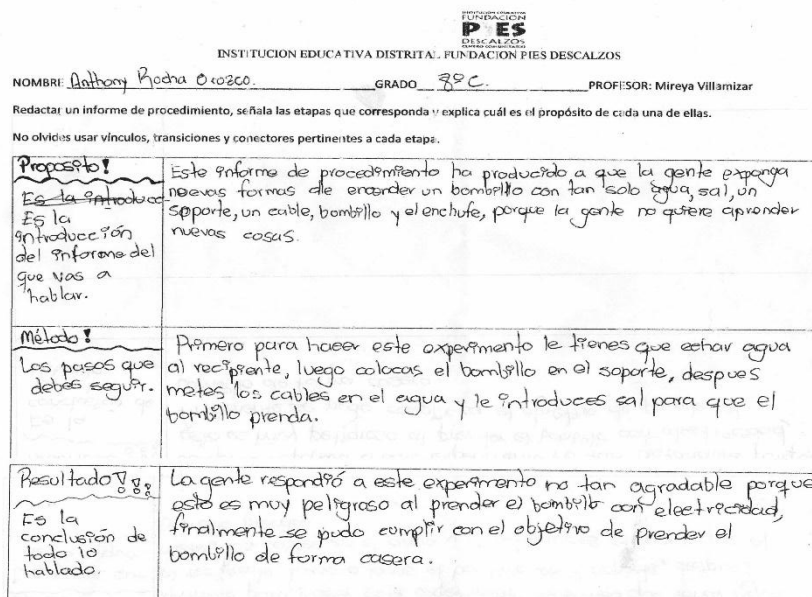 FUNDACION
PIES
DESCALZOS
INSTITUCION EDUCATIVA DISTRITAL FUNDACION PIES DESCALZOS
NOMBRE Anthony Rocha Orozco. GRADO 8º C. PROFESOR: Mireya Villamizar
Redactar un informe de procedimiento, señala las etapas que corresponda y explica cuál es el propósito de cada una de ellas.
No olvides usar vínculos, transiciones y conectores pertinentes a cada etapa.
Proposito!
Es la introducc
Es la
introducción
del informe del
que vas a
hablar.
Este informe de procedimiento ha producido a que la gente exponga
nuevas formas de encender un bombillo con tan solo agua, sal, un
soporte, un cable, bombillo y el enchufe, porque la gente no quiere aprender
nuevas cosas.
Método!
Los pasos que
debes seguir.
Primero para hacer este experimento le tienes que echar agua
al recipiente, luego colocas el bombillo en el soporte, despues
metes los cables en el agua y le introduces sal para que el
bombillo prenda.
Resultado!!!
Es la
conclusión de
todo lo
hablado.
La gente respondió a este experimento no tan agradable porque
esto es muy peligroso al prender el bombillo con electricidad,
finalmente se pudo cumplir con el objetivo de prender el
bombillo de forma casera.